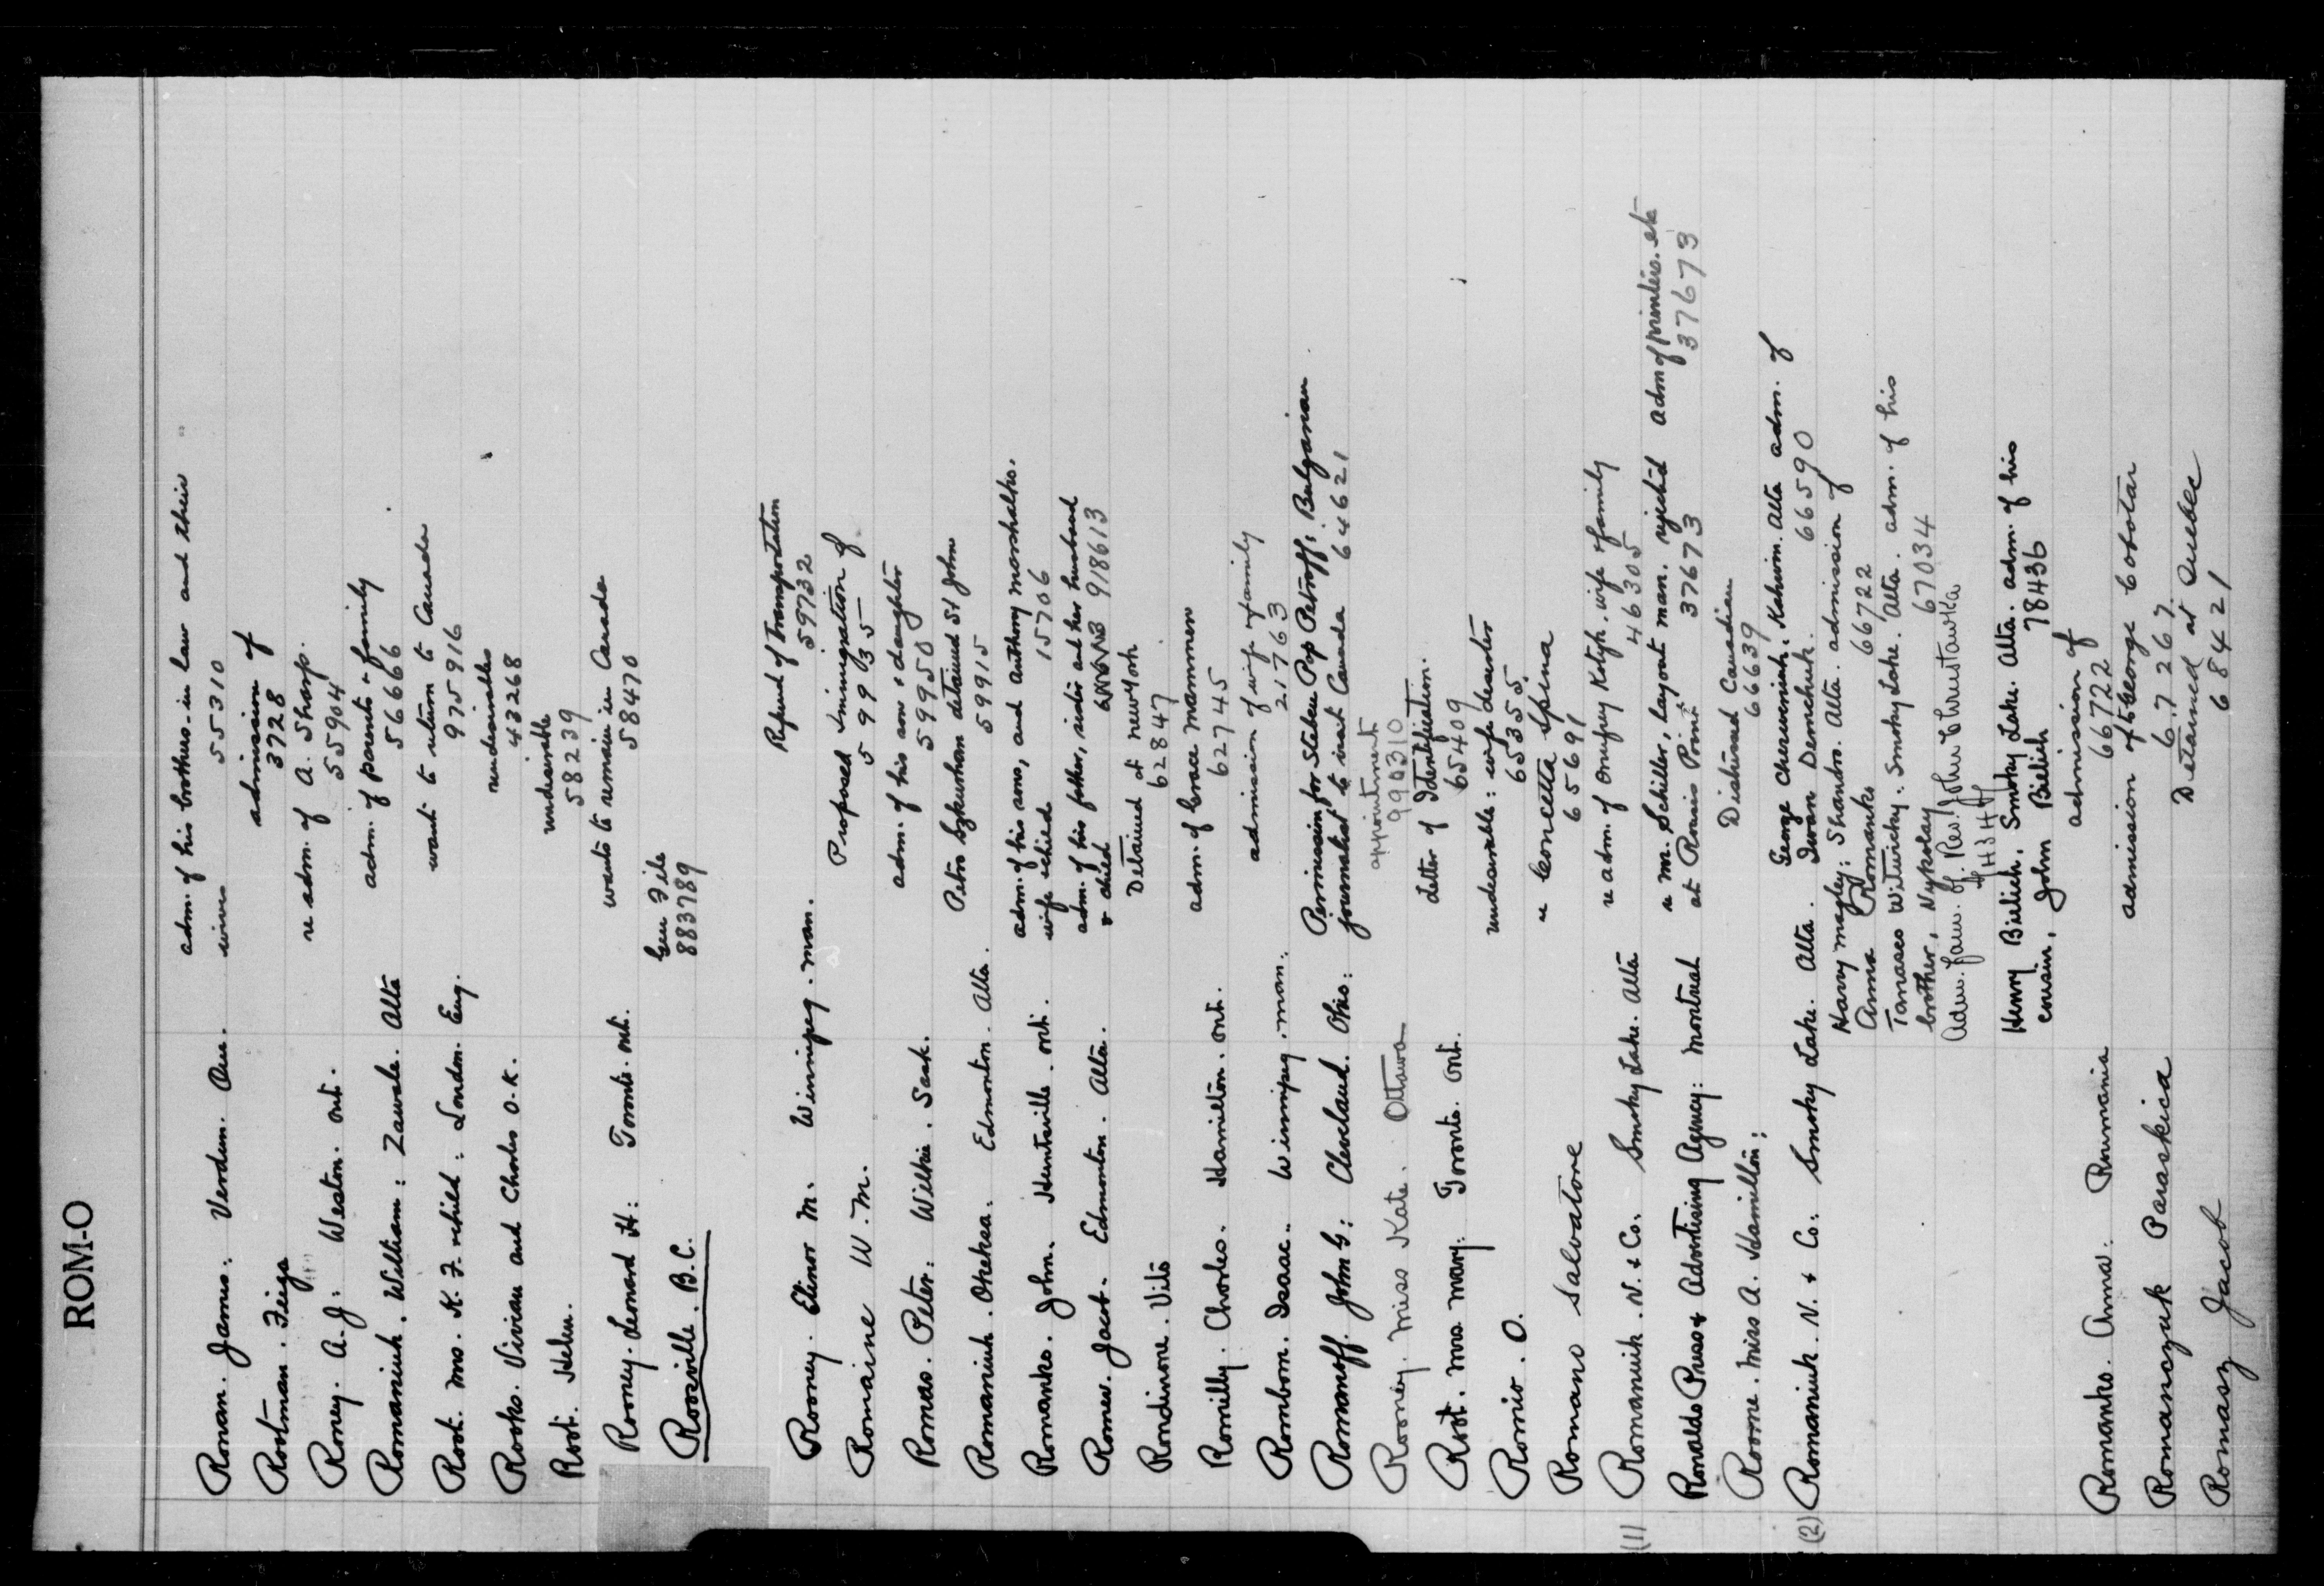 ROM-O
Ronan. James. Verdun. Que. adm. of his brothers-in law and their
wives 55310
Rootman. Feiga admission of
3728
Roney. A. J. Weston. Ont. re adm. of A. Sharp.
55904
Romaniuk. William: Zawale. Alta adm. of parents & family
56666
Root. Mrs. K. F. & child: London. Eng. want to return to Canada
975916
Rooks. Vivian and Charles O.K. undesirables
43268
Root. Helen. undesirable
58239
Rooney. Leonard H: Toronto. Ont. wants to remain in Canada
58470
Rooseville. B.C. Gen File
883789
Rooney. Elinor M. Winnipeg. Man. Refund of Transportation
59732
Romaine W. M. Proposed immigration of
59935
Romas. Peter: Wilkie. Sask. adm. of his son & daughter
59950
Romaniuk. Oleksa. Edmonton. Alta. Petro Szkurhan detained St John
59915
Romanko. John. Huntsville. Ont. adm. of his sons, and Anthony Marshalko.
wife & child 15706
Romew. Jacob. Edmonton. Alta. adm. of his father, sister and her husband
& child 918613
Rondinone. Vito Detained at New York
62847
Romilly. Charles. Hamilton. Ont. adm. of Grace Mammen
62745
Rombom. Isaac. Winnipeg. Man. admission of wife & family
21763
Romanoff. John G: Cleveland. Ohio: Permission for Stateu Pop Petroff, Bulgarian
journalist to visit Canada 64621
Rooney. Miss Kate. Ottawa appointment
990310
Root. Mrs Mary. Toronto. Ont. Letter of Identification.
65409
Romio. O. undesirable: wife deserter
65355
Romano Salvatore re Concetta Spina
65691
(1) Romaniuk. N. & Co. Smoky Lake. Alta re adm. of Onufrey Kotyk. wife & family
46305
Ronalds Press & Advertising Agency: Montreal re M. Schiller, layout man. rejected adm of printers. etc
at Rouses Point 37673 37673
Roome. Miss A. Hamilton: Distressed Canadian
66639
(2) Romaniuk. N. & Co. Smoky Lake. Alta. George Cherwoniuk: Kahwin. Alta adm. of
Iwan Demchuk. 66590
Harry Magley: Shandro. Alta. admission of
Anna Romanko 66722
Tanasco Witwicky: Smoky Lake. Alta. adm. of his
brother, Nykolay 67034
Adm. Jam. of. Rev. John Chrustawka
Henry Bielich, Smoky Lake. Alta. adm. of his
cousin, John Bielich 78436
Romanko. Anna. Rumania admission of
66722
Romanczuk Paraskica admission of George Cobotar
67267.
Romasz Jacob Detained at Quebec
68421